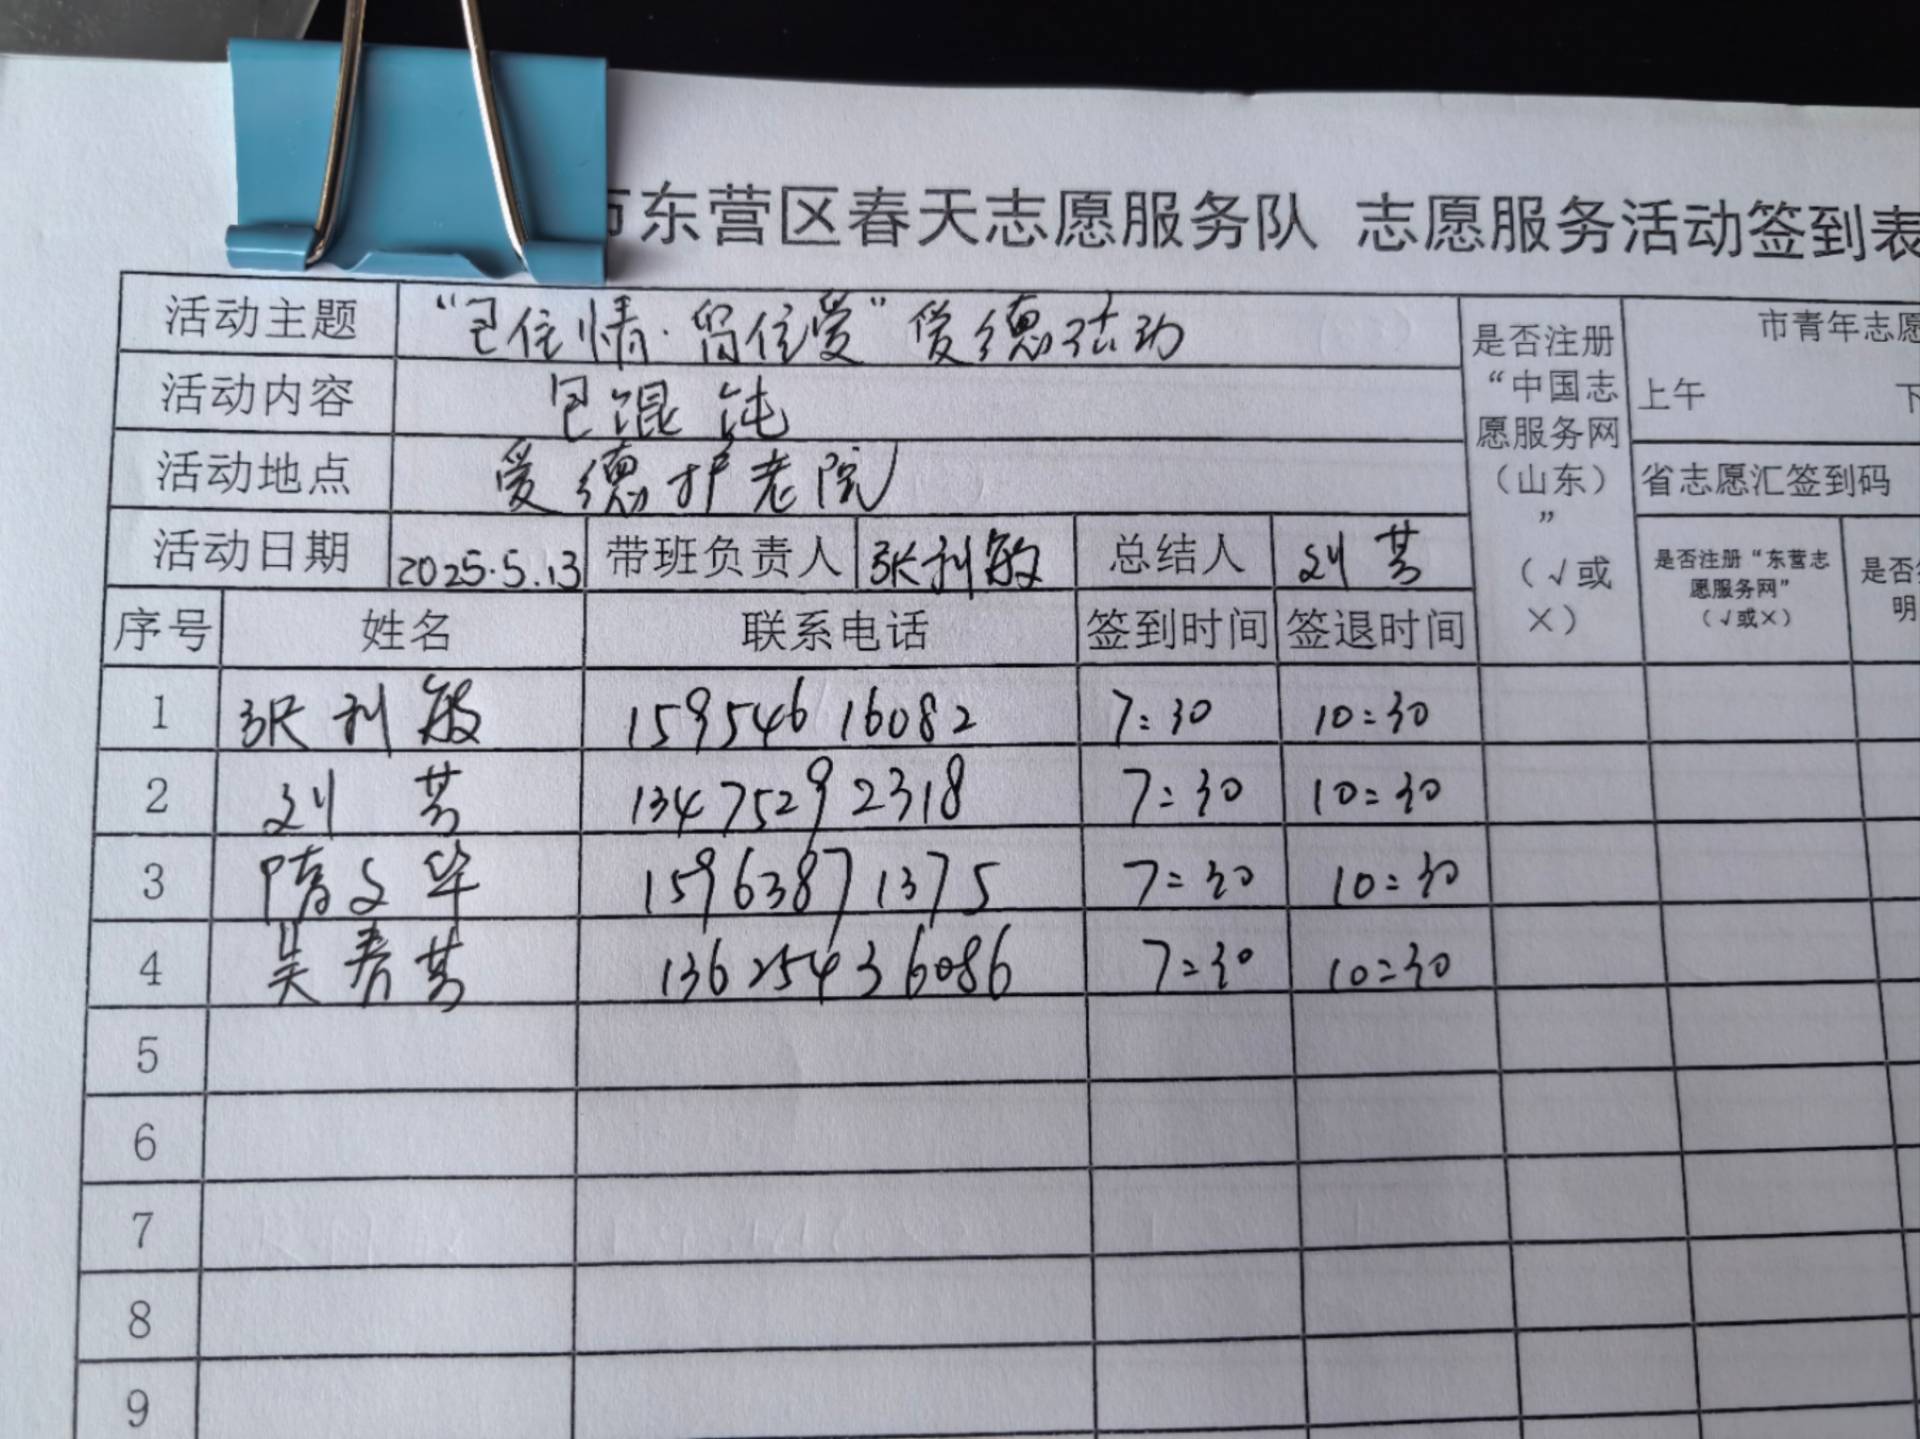 市东营区春天志愿服务队 志愿服务活动签到表
活动主题 “包住情·留住爱”爱德活动
活动内容 包馄饨
活动地点 爱德护老院
活动日期 2025.5.13 带班负责人 张利敏 总结人 刘芳
是否注册“中国志愿服务网（山东）”（√或×）
市青年志愿
上午 下
省志愿汇签到码
是否注册“东营志愿服务网”（√或×）
是否
明
序号 姓名 联系电话 签到时间 签退时间
1 张利敏 15954616082 7:30 10:30
2 刘芳 13475292318 7:30 10:30
3 隋文华 15963871375 7:30 10:30
4 吴春芳 13625436086 7:30 10:30
5
6
7
8
9